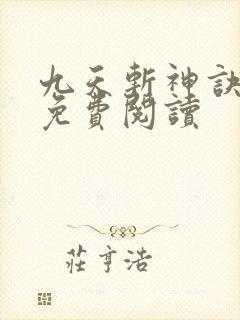 九天斬神訣
免費閱讀
莊亨浩